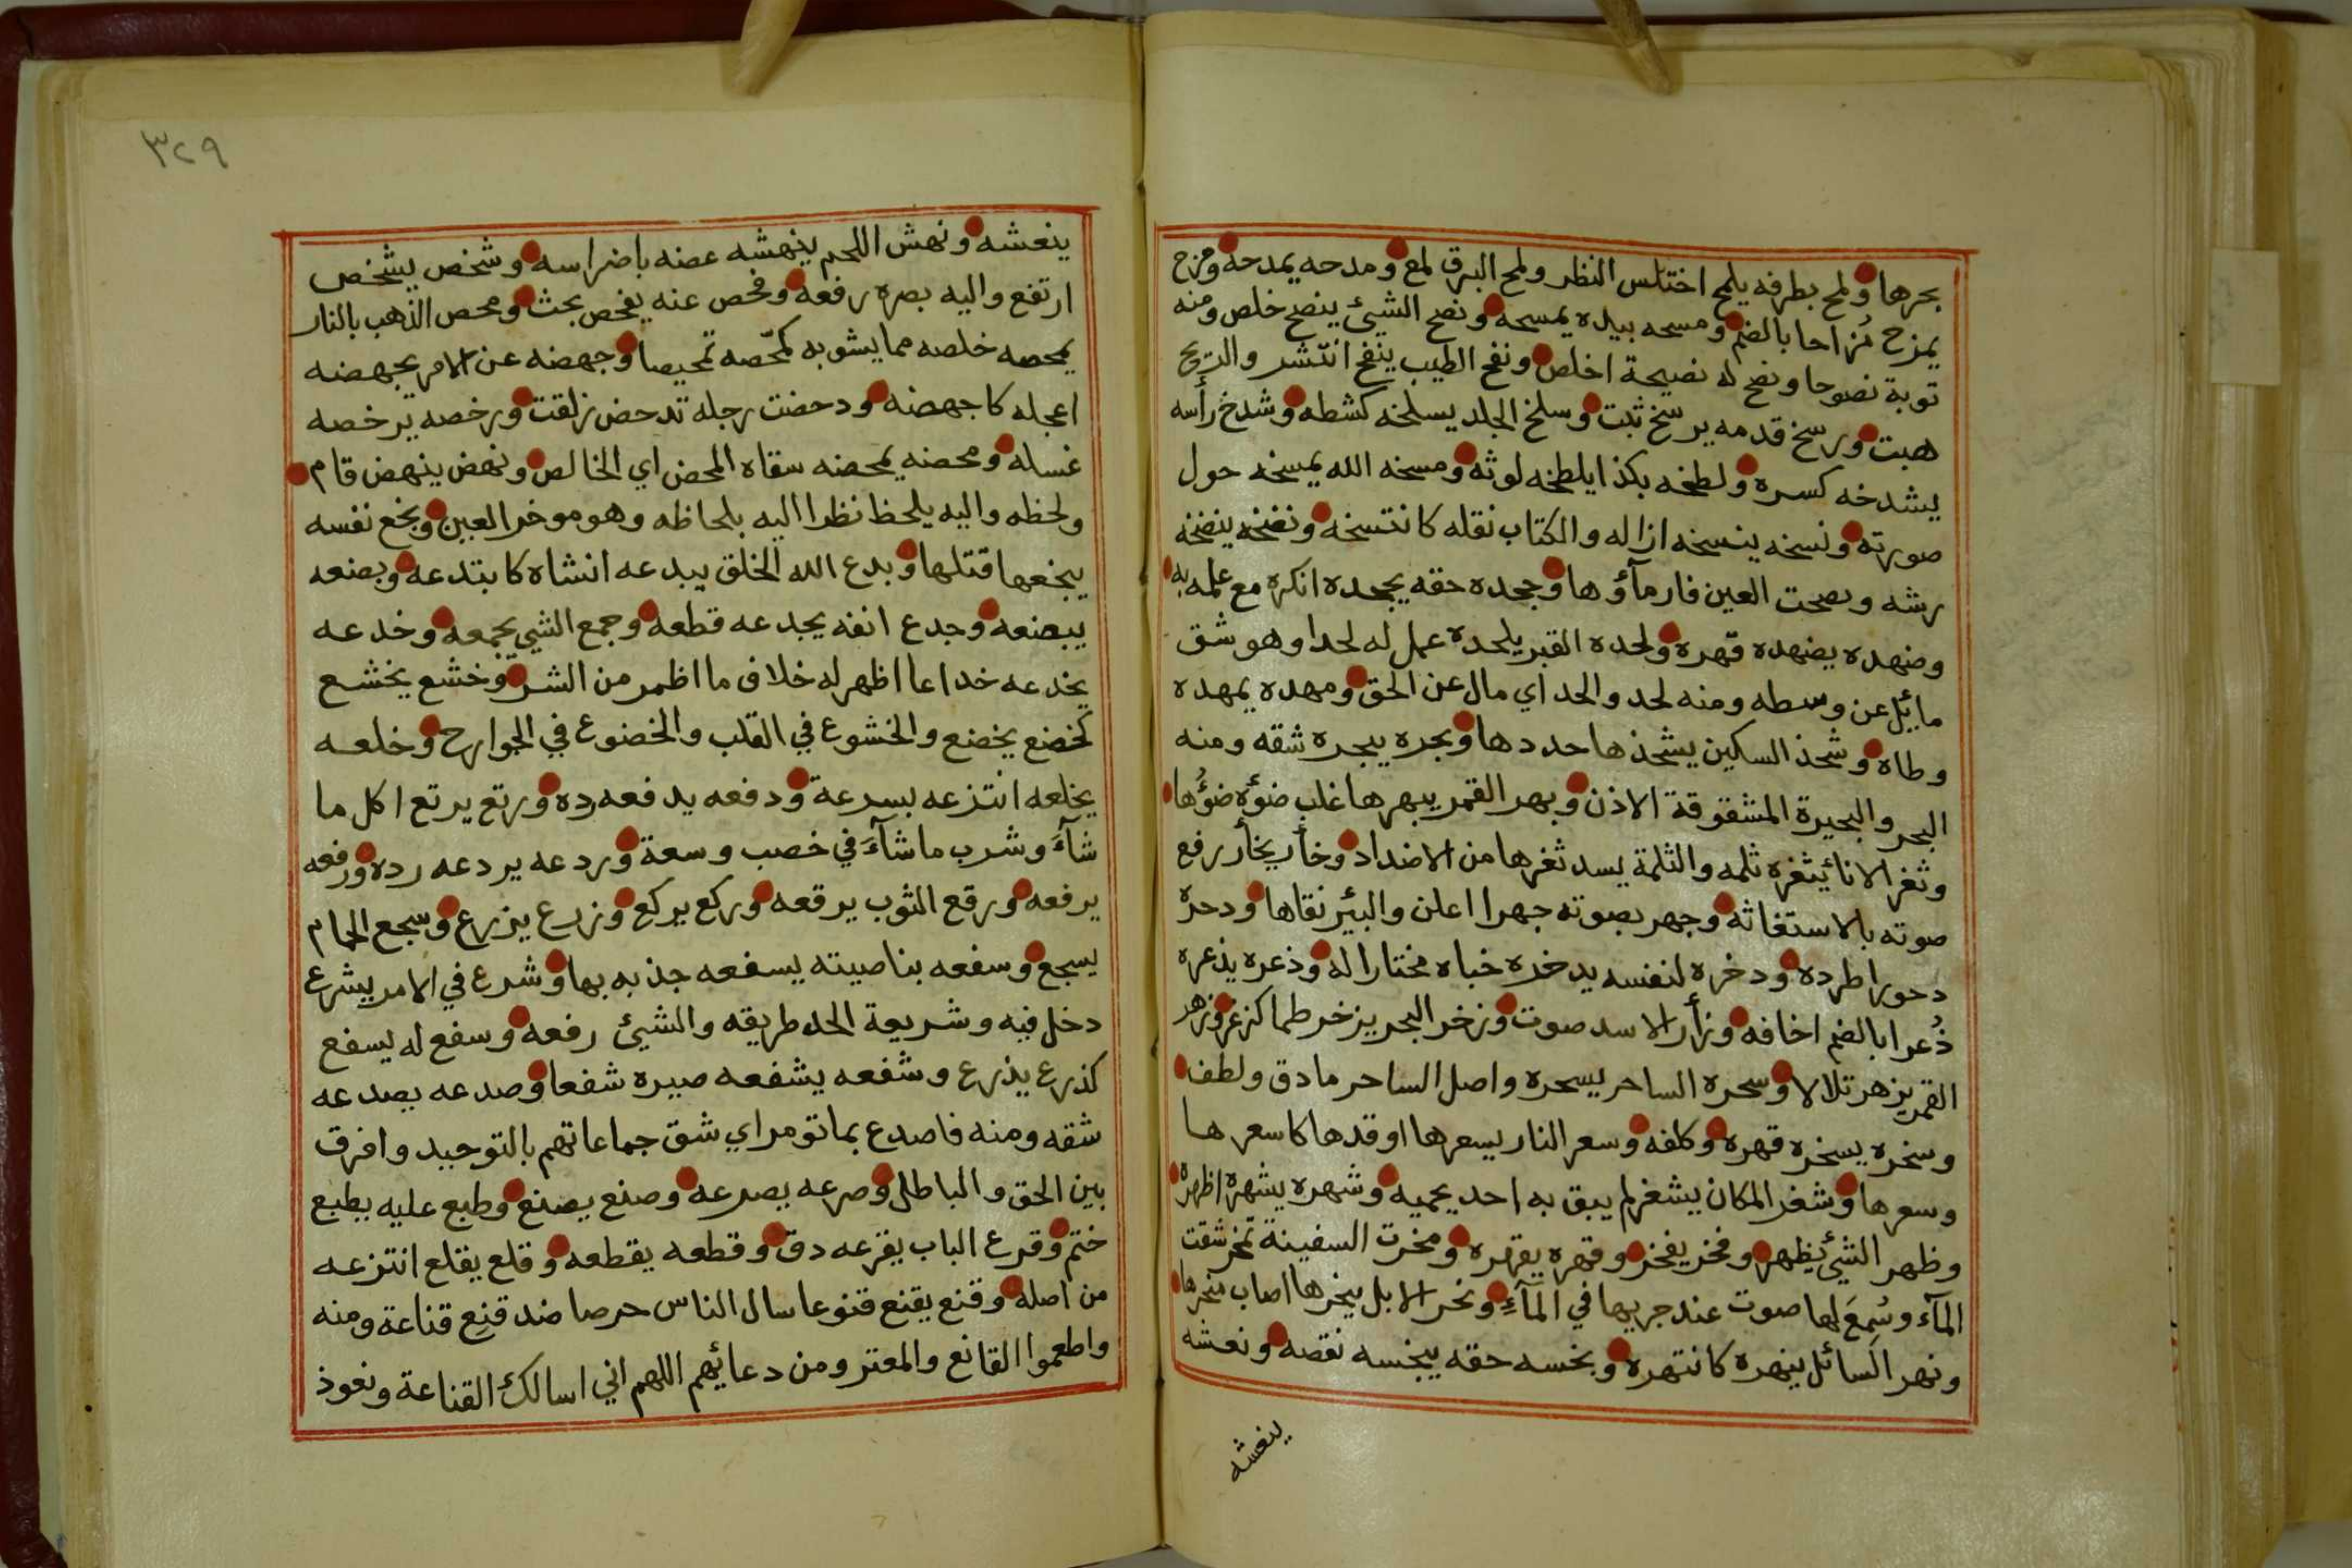 بحرها ولمح بطرفه يلمح اختلس النظر ولمح البرق لمع ومدحه يمدحه ومزح
يمزح مُزاحا بالضم ومسحه بيده يمسحه ونصح الشيئ ينصح خلص ومنه
توبة نصوحا ونصح له نصيحة اخلص ونفح الطيب ينفح انتشر والريح
هبت ورسخ قدمه يرسخ ثبت وسلخ الجلد يسلخه كشطه وشدخ رأسه
يشدخه كسره ولطخه بكذا يلطخه لوثه ومسخه الله يمسخه حول
صورته ونسخه ينسخه ازاله والكتاب نقله كانتسخه ونضخه ينضخه
رشه ونضخت العين فار مآؤها وجحده حقه يجحده انكره مع علمه به
وضهده يضهده قهره ولحده القبر يلحده عمل له لحدا وهو شق
مائل عن وسطه ومنه لحد والحد اي مال عن الحق ومهده يمهده
وطاه وشحذ السكين يشحذها حددها وبحره يبحره شقه ومنه
البحر والبحيرة المشقوقة الاذن وبهر القمر يبهرها غلب ضوئه ضوُها
وثغر الانا يثغره ثلمه والثلمة يسد ثغرها من الاضداد وخأر يخأر رفع
صوته بالاستغاثه وجهر بصوته جهرا اعلن والبئر نقاها ودحره
دحورا طرده ودخره لنفسه يدخره خباه مختارا له وذعره يذعره
ذُعرا بالضم اخافه وزأر الاسد صوت وزخر البحر يزخر طما كزعر وزهر
القمر يزهر تلالا وسحره الساحر يسحره واصل الساحر ما دق ولطف
وسخره يسخره قهره وكلفه وسعر النار يسعرها اوقدها كاسعرها
وسعرها وشغر المكان يشغر لم يبق به احد يحميه وشهره يشهره اظهره
وظهر الشيئ يظهر وفخر يفخر وقهره يقهره ومخرت السفينة تمخر شقت
المآء وسُمِعَ لها صوت عند جريها في المآءِ ونحر الابل ينحرها اصاب منحرها
ونهر السائل ينهره كانتهره وبخسه حقه يبخسه نقصه ونعشه
ينعشه
٣٢٩
ينعشه ونهش اللحم ينهشه عضه باضراسه وشخص يشخص
ارتفع واليه بصره رفعه وفحص عنه يفحص بحث ومحص الذهب بالنار
يمحصه خلصه مما يشوبه كمحّصه تمحيصا وجهضه عن الامر يجهضه
اعجله كاجهضه ودحضت رجله تدحض زلقت ورخصه يرخصه
غسله ومحضه يمحضه سقاه المحض اي الخالص ونهض ينهض قام
ولحظه واليه يلحظ نظر اليه بلحاظه وهو موخر العين وبخع نفسه
يبخعها قتلها وبدع الله الخلق يبدعه انشاه كابتدعه وبضعه
يبضعه وجدع انفه يجدعه قطعه وجمع الشي يجمعه وخدعه
يخدعه خداعا اظهر له خلاف ما اظمر من الشر وخشع يخشع
كخضع يخضع والخشوع في القلب والخضوع في الجوارح وخلعه
يخلعه انتزعه بسرعة ودفعه يدفعه رده ورتع يرتع اكل ما
شآءَ وشرب ما شآءَ في خصب وسعة وردعه يردعه رده ورفعه
يرفعه ورقع الثوب يرقعه وركع يركع وزرع يزرع وسجع الحمام
يسجع وسفعه بناصيته يسفعه جذبه بها وشرع في الامر يشرع
دخل فيه وشريعة الحد طريقه والشيئ رفعه وسفع له يسفع
كذرع يذرع وشفعه يشفعه صيره شفعا وصدعه يصدعه
شقه ومنه فاصدع بما تومر اي شق جماعاتهم بالتوحيد وافرق
بين الحق والباطل وصرعه يصرعه وصنع يصنع وطبع عليه يطبع
ختم وقرع الباب يقرعه دق وقطعه يقطعه وقلع يقلع انتزعه
من اصله وقنع يقنع قنوعا سال الناس حرصا ضد قنِع قناعة ومنه
واطعموا القانع والمعتر ومن دعائهم اللهم اني اسالك القناعة ونعوذ